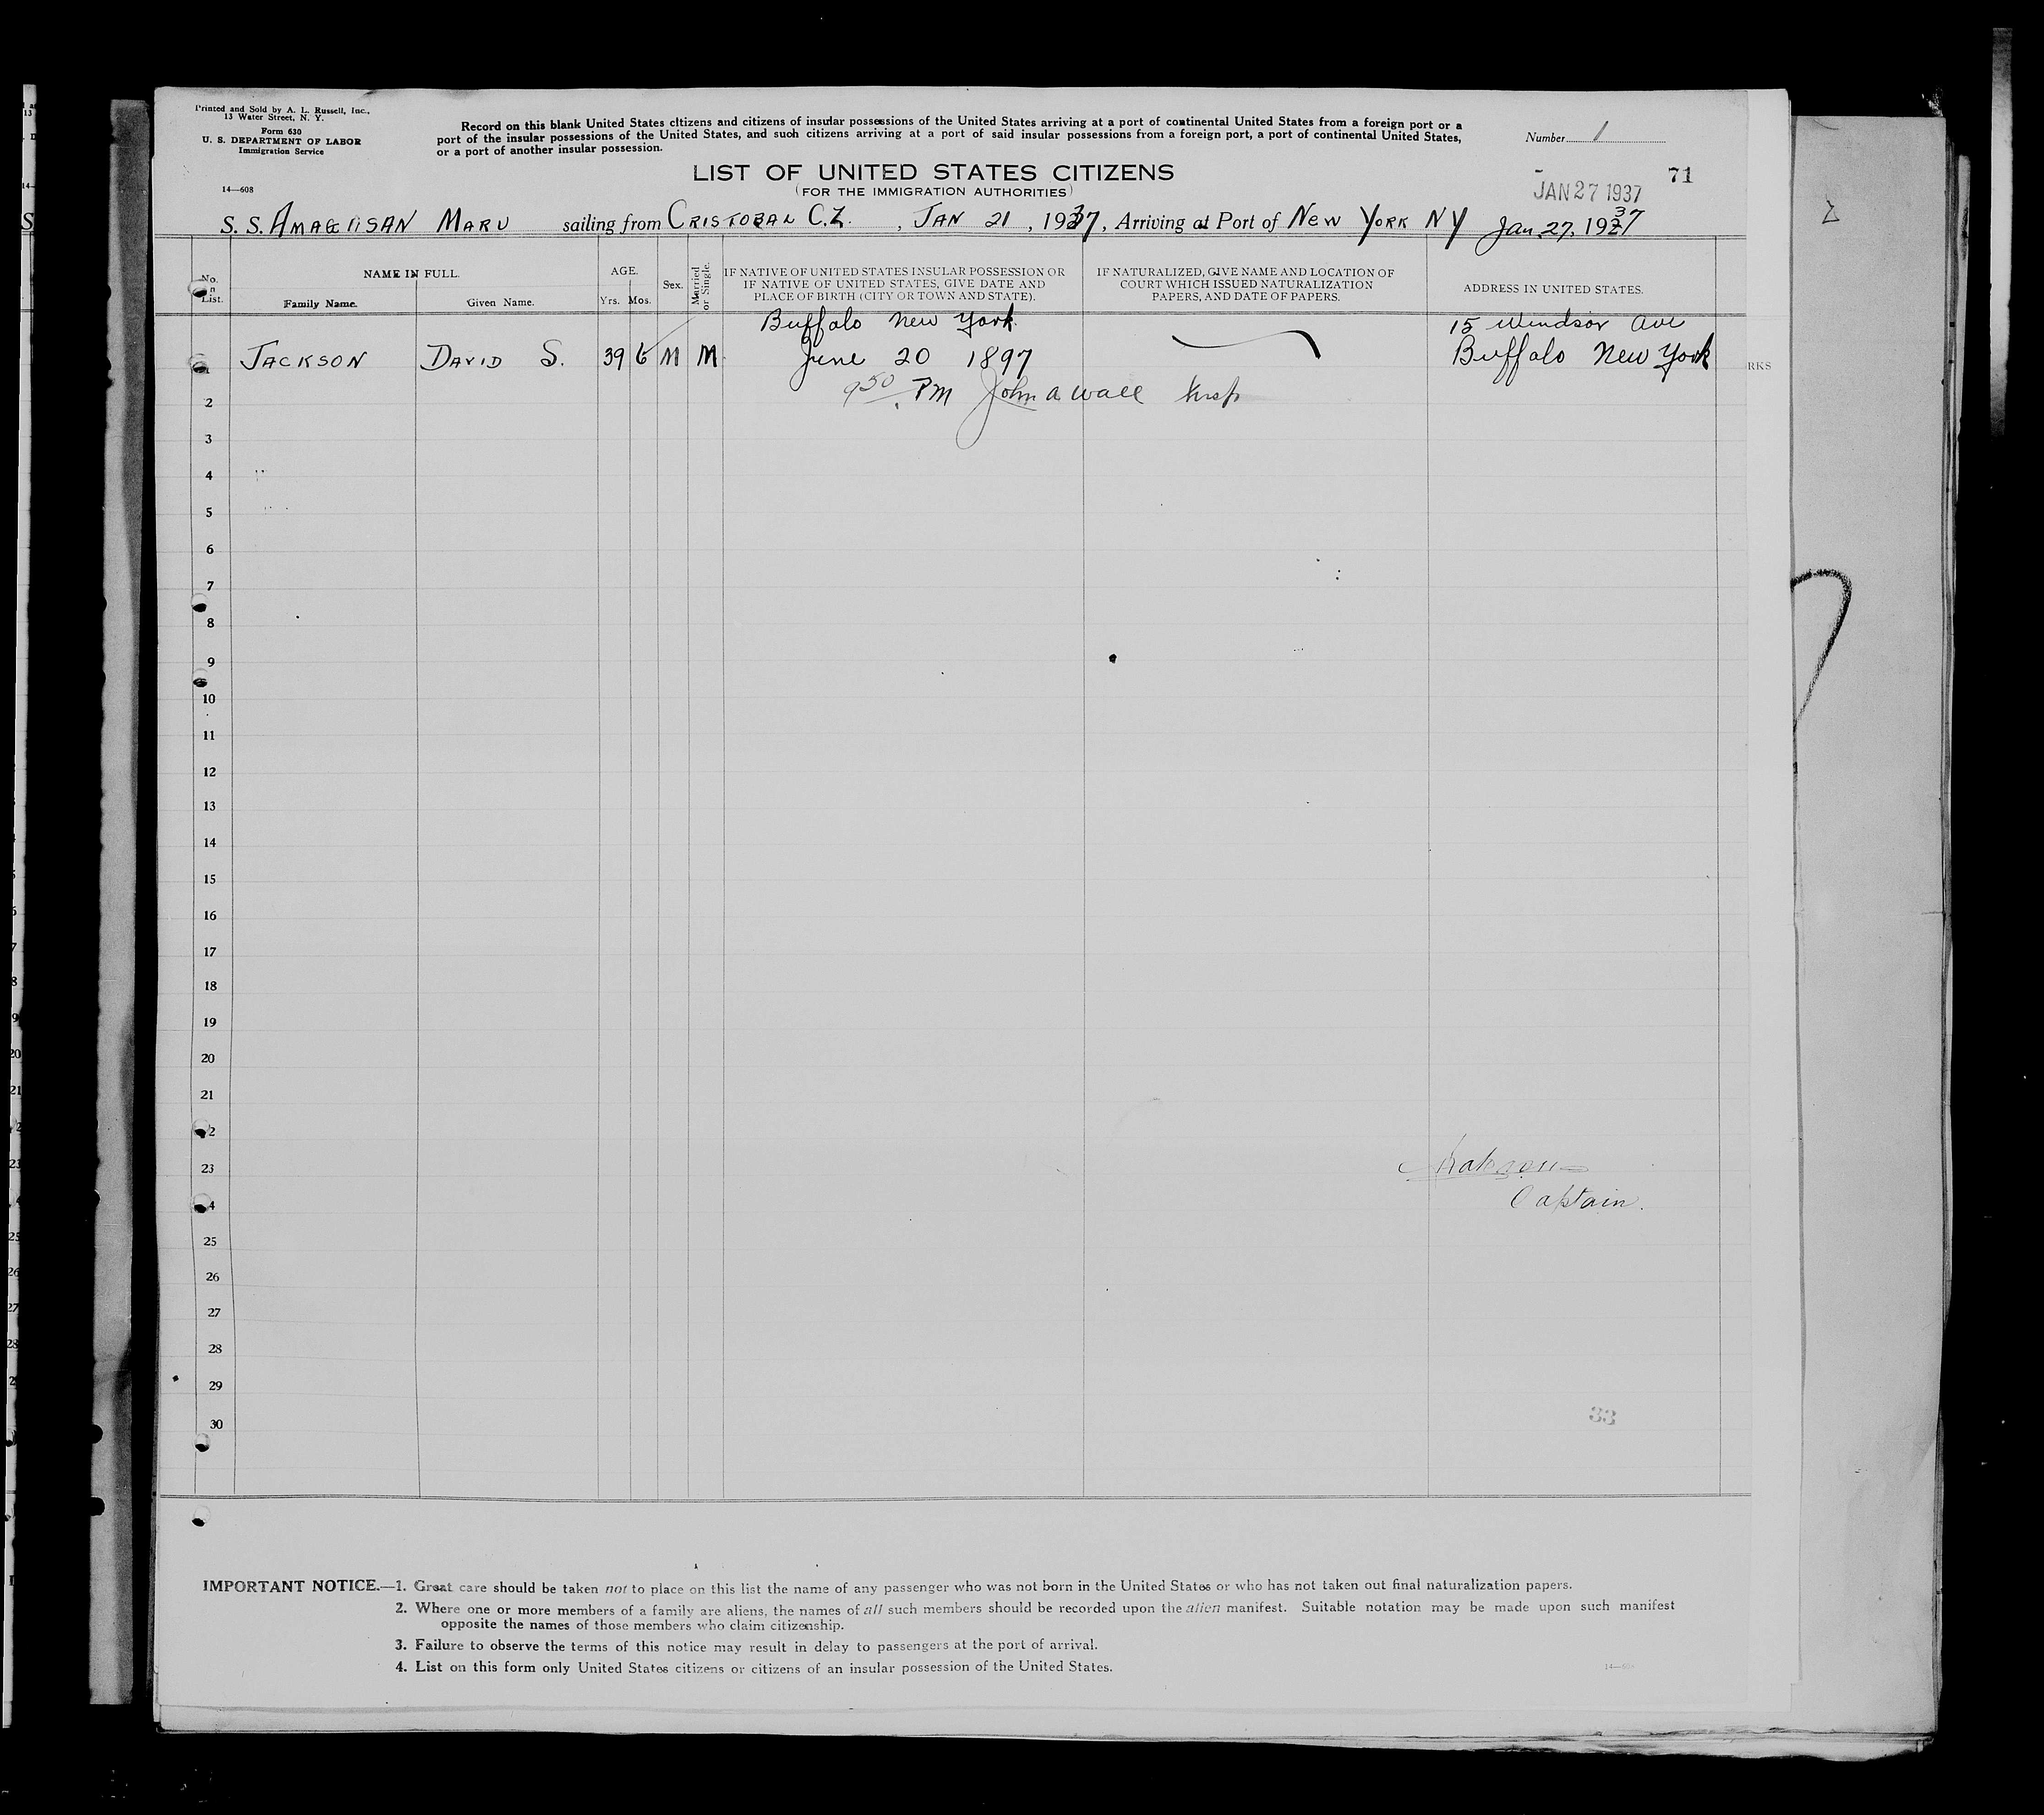 Printed and Sold by A. L. Russell, Inc.,
13 Water Street, N. Y.
Form 630
U. S. DEPARTMENT OF LABOR
Immigration Service
14—608
Record on this blank United States citizens and citizens of insular possessions of the United States arriving at a port of continental United States from a foreign port or a
port of the insular possessions of the United States, and such citizens arriving at a port of said insular possessions from a foreign port, a port of continental United States,
or a port of another insular possession.
Number 1
LIST OF UNITED STATES CITIZENS
(FOR THE IMMIGRATION AUTHORITIES)
JAN 27 1937
71
S. S. AMAGISAN MARU sailing from CRISTOBAL C.Z. , JAN 21 , 1937, Arriving at Port of NEW YORK NY Jan. 27, 1937
No. in List.
NAME IN FULL.
Family Name.
Given Name.
AGE.
Yrs. Mos.
Sex.
Married or Single.
IF NATIVE OF UNITED STATES INSULAR POSSESSION OR
IF NATIVE OF UNITED STATES, GIVE DATE AND
PLACE OF BIRTH (CITY OR TOWN AND STATE).
IF NATURALIZED, GIVE NAME AND LOCATION OF
COURT WHICH ISSUED NATURALIZATION
PAPERS, AND DATE OF PAPERS.
ADDRESS IN UNITED STATES.
Buffalo New York 15 Windsor Ave
1 JACKSON DAVID S. 39 6 M M June 20 1897 Buffalo New York
RKS
9 50 PM John A Wall Insp
2
3
4
5
6
7
8
9
10
11
12
13
14
15
16
17
18
19
20
21
2
23
4
Captain.
25
26
27
28
29
30
33
IMPORTANT NOTICE.—1. Great care should be taken not to place on this list the name of any passenger who was not born in the United States or who has not taken out final naturalization papers.
2. Where one or more members of a family are aliens, the names of all such members should be recorded upon the alien manifest. Suitable notation may be made upon such manifest
opposite the names of those members who claim citizenship.
3. Failure to observe the terms of this notice may result in delay to passengers at the port of arrival.
4. List on this form only United States citizens or citizens of an insular possession of the United States.